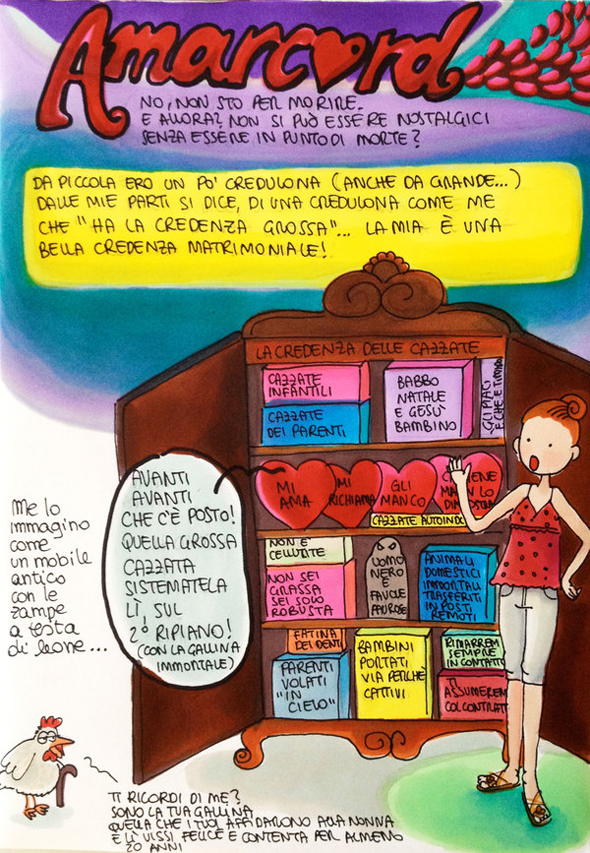 Amarcord
NO, NON STO PER MORIRE.
E ALLORA? NON SI PUÒ ESSERE NOSTALGICI
SENZA ESSERE IN PUNTO DI MORTE?
DA PICCOLA ERO UN PO' CREDULONA (ANCHE DA GRANDE...)
DALLE MIE PARTI SI DICE, DI UNA CREDULONA COME ME
CHE "HA LA CREDENZA GROSSA"... LA MIA È UNA
BELLA CREDENZA MATRIMONIALE!
LA CREDENZA DELLE CAZZATE
CAZZATE
INFANTILI
CAZZATE
DEI PARENTI
BABBO
NATALE
E GESÙ
BAMBINO
GLI PIACI
E CHE È TIMIDO
MI
AMA
MI
RICHIAMA
GLI
MANCO
CAZZATE AUTOINDO
NON È
CELLULITE
NON SEI
GRASSA
SEI SOLO
ROBUSTA
UOMO
NERO
E
FAVOLE
PAUROSE
ANIMALI
DOMESTICI
IMMORTALI
TRASFERITI
IN POSTI
REMOTI
FATINA
DEI DENTI
PARENTI
VOLATI
"IN
CIELO"
BAMBINI
PORTATI
VIA PERCHÈ
CATTIVI
RIMARREM
SEMPRE
IN CONTATTO
TI
ASSUMEREM
COL CONTRATT
AVANTI
AVANTI
CHE C'È POSTO!
QUELLA GROSSA
CAZZATA
SISTEMATELA
LÌ, SUL
2° RIPIANO!
(CON LA GALLINA
IMMORTALE)
Me lo
immagino
come
un mobile
antico
con le
zampe
a testa
di leone...
TI RICORDI DI ME?
SONO LA TUA GALLINA
QUELLA CHE I TUOI AFFIDARONO ALLA NONNA
E LÌ VISSI FELICE E CONTENTA PER ALMENO
20 ANNI